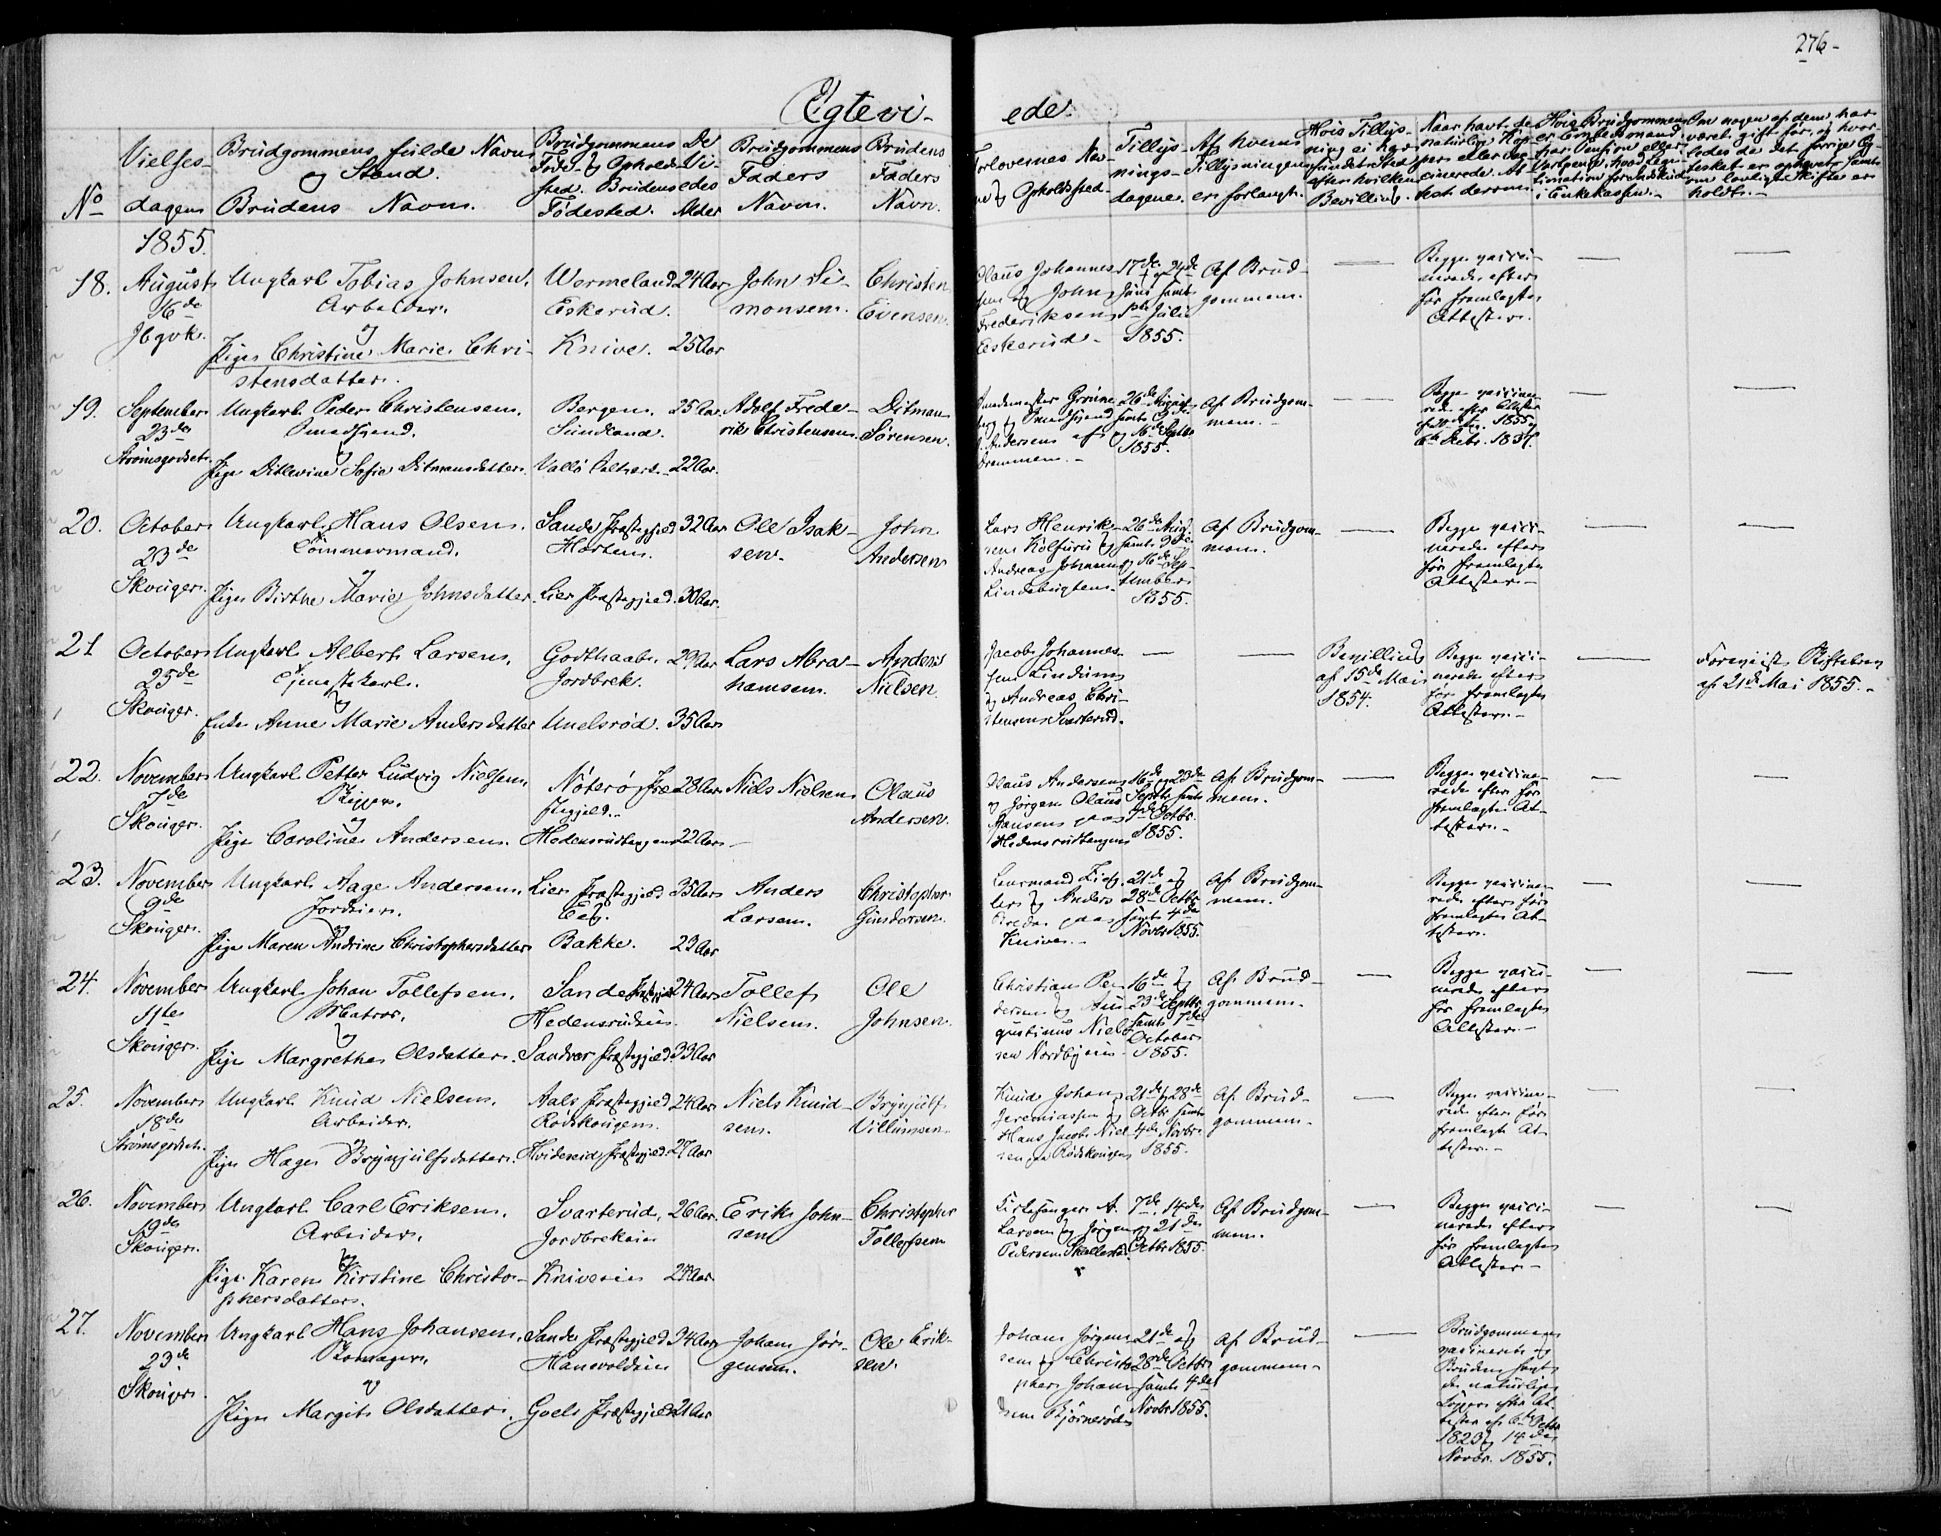 276-
Egtevi-
ede.
No
Vielses-
dagen
Brudgommens fulde Navn
og Stand.
Brudens Navn.
Brudgommens
Føde- og Opholds
sted. Brudens
Fødested.
De
Vi-
edes
Alder
Brudgommens
Faders
Navn.
Brudens
Faders
Navn.
Forlovernes Nav
ne og Opholdssted-
Tillys-
nings-
dagene.
Af hvem
Tillysningen
er forlangt.
Hvis Tillys-
ning ei har
fundet Sted
efter hvilken
Bevilling.
Naar havt de
naturlige Kop-
per eller vac-
cinerede. At-
test derom.
Hvis Brudgommen
er Embedsmand
i Enkekassen.-
Om nogen af dem har
været gift før, og hvor-
ledes da det forrige Eg-
teskab er ophævet samt
om lovligt Skifte er
holdt.-
1855.
18.
August
16de
Ungkarl Tobias Johnsen,
Arbeider.
og
Pige Christine Marie Chri-
stensdatter.
Wermeland
Eskerud.
Knive.
24 Aar
25 Aar
John Si-
monsen.
Christen
Evensen.
Olaus Johannes-
sen og John
Frederiksen
Eskerud-
17de og 24de
Juni samt
1ste Julii
1855.
Af Brud-
gommen.
Begge vacci-
nerede efter
før fremlagte
Attester.
19.
September
23de
Strømsgodset.
Ungkarl Peder Christensen.
Smedsvend.
og
Pige Ditlevine Sofie Ditmansdatter.
Bergen.
Sundland.
25 Aar
22 Aar.
Adolf Frede-
rik Christensen.
Ditman
Sørensen.
Andersen af
Drammen.-
26de August
samt 9de
og 16de Septbr
1855.
Af Brudgom-
men.-
Begge vaccine-
rede efter Attester
20.
October
23de
Skouger.
Ungkarl Hans Olsen.
Tømmermand.
og
Pige Birthe Marie Johnsdatter.
Sande Præstegjeld
Horten.
Lier Præstegjeld.
32 Aar
30 Aar.
Ole Isak-
sen.
John
Andersen
Lars Henrik-
sen Kolfuru og
Andreas Johannesen
Lindebugten.
26de Aug.
samt 9de
og 16de Sep-
tember
1855.
Af Brudgom-
men.
Begge vacci-
nerede efter
før fremlagte
Attester.-
21
October
25de
Skouger.
Ungkarl Albert Larsen,
Tjenestekarl.
og
Enke Anne Marie Andersdatter
Godthaab.
Jordbrek.
Unelsrød.
29 Aar
35 Aar
Lars Abra-
hamsen.
Anders
Nielsen.
Jacob Johannes-
sen Lindum
og Andreas Chri-
stensen Svarterud.
Bevilling
af 15de Mai
1854.
Begge vacci-
nerede efter
før fremlagte
Attester.-
Foreviist Skiftebrev
af 21de Mai 1855.-
22.
November
7de
Skouger.
Ungkarl Petter Ludvig Nielsen,
Skipper.
og
Pige Caroline Andersen.
Nøterø Præ-
stegjeld.-
Hedensrudtangen
28 Aar
22 Aar
Niels Nielsen
Olaus
Andersen.
Olaus Andersen
og Jørgen Olaus
Hansen paa
Hedensrudtangen
16de og 23de
Septbr samt
7de Octbr.
1855.
Af Brudgom-
men.
Begge vaccine-
rede efter før
fremlagte At-
tester.-
23.
November
9de
Skouger.
Ungkarl Aage Andersen.
og
Pige Maren Andrine Christophersdatter
Lier Præstegjeld
Bakke.
35 Aar
23 Aar
Anders
Larsen.
Christopher
Gundersen.
Knive.-
21de og
28de Octbr
samt 4de
Novbr 1855.
Af Brudgom-
men.
Begge vaccine-
rede efter før
fremlagte At-
tester.
24.
November
11te
Skouger.
Ungkarl Johan Tollefsen.
Matros.
og
Pige Margrethe Olsdatter.
Sande Præstegjeld
Hedensrudeie.
Sandsvær Præstegjeld
24 Aar
33 Aar
Tollef
Nielsen.
Ole
Johnsen.
Christian Pe-
dersen og Au-
gustinus Niel-
sen Nordbyeie
16de og
23de Septbr
samt 7de
October
1855.
Af Brud-
gommen-
Begge vacci-
nerede efter
før fremlagte
Attester.-
25.
November
18de
Strømsgodset.
Ungkarl Knud Nielsen.
Arbeider.
Pige Hæge Brynjulfsdatter.
Aals Præstegjeld
Rødskougen.
Hvideseid Præstegjeld.
24 Aar
27 Aar
Niels Knud-
sen.
Brynjulf
Villumsen
Knud Johan
Jeremiassen og
Hans Jacob Niel-
sen paa Rødskougen
21de og 28de
Octbr samt
4de Novbr
1855.
Af Brud-
gommen-
Begge vaccine-
rede efter før
fremlagte At-
tester.-
26.
November
19de
Skouger.
Ungkarl Carl Eriksen.
Arbeider.
og
Pige Karen Kirstine Christo-
phersdatter.
Svarterud.
Jordbrekeie
Kniveeie
26 Aar.
Erik John-
sen
Christopher
Tollefsen
Kirkesanger A.
Larsen og Jørgen
Pedersen Skallerød.
7de, 14de
og 21de
Octbr 1855.
Af Brudgom-
men.
Begge vacci-
nerede efter
før fremlagte
Attester.-
27.
November
23de
Skouger.
Ungkarl Hans Johansen.
Skomager.
og
Pige Margit Olsdatter.
Sande Præstegjeld
Hanevoldeie
Goels Præstegjeld
34 Aar
21 Aar
Johan Jør-
gensen.
Ole Erik-
sen.
Johan Jørgen-
sen og Christo-
pher Johan-
sen Bjørnerød
21de og
28de Octbr
samt 4de
Novbr 1855.
Af Brud-
gommen-
Brudgommen
vaccineret og
Bruden havt
de naturlige
Kopper efter At-
tester af 6te Octbr
1823 og 14de
Novbr. 1855.